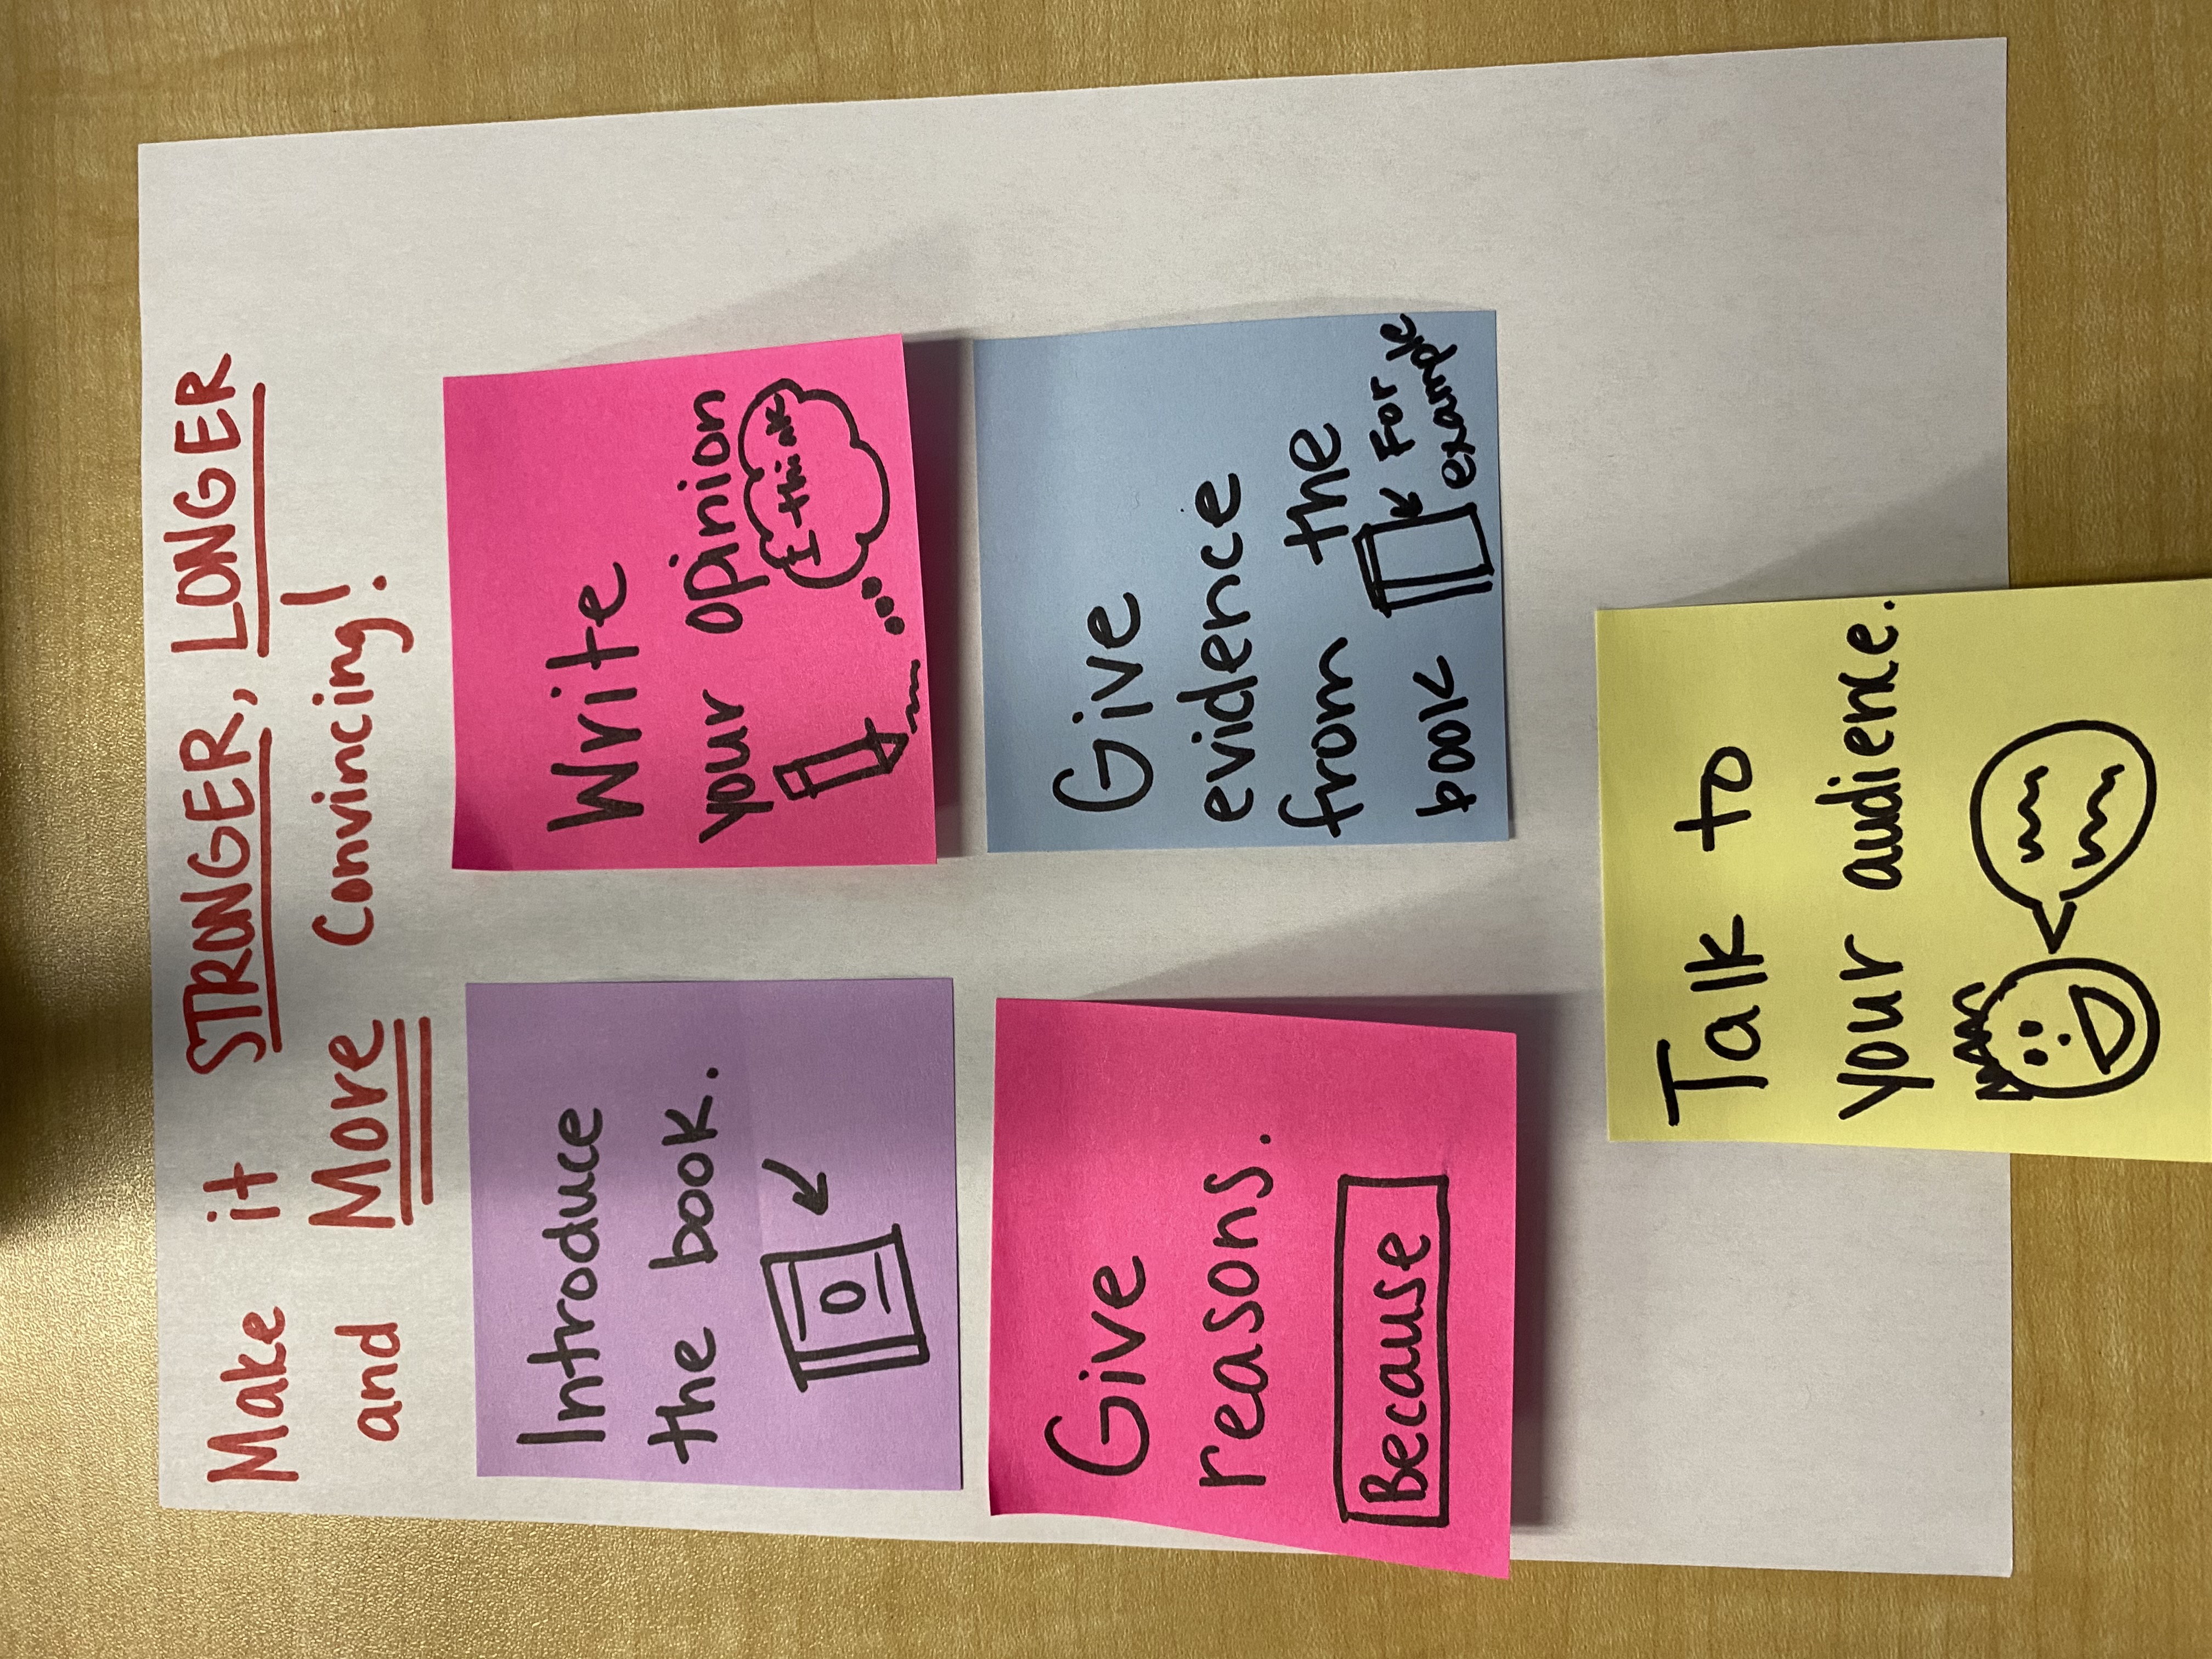 Make it STRONGER, LONGER
and More Convincing!
Introduce
the book.
Write
your opinion
I think
Give
reasons.
Because
Give
evidence
from the
book
For
example
Talk to
your audience.